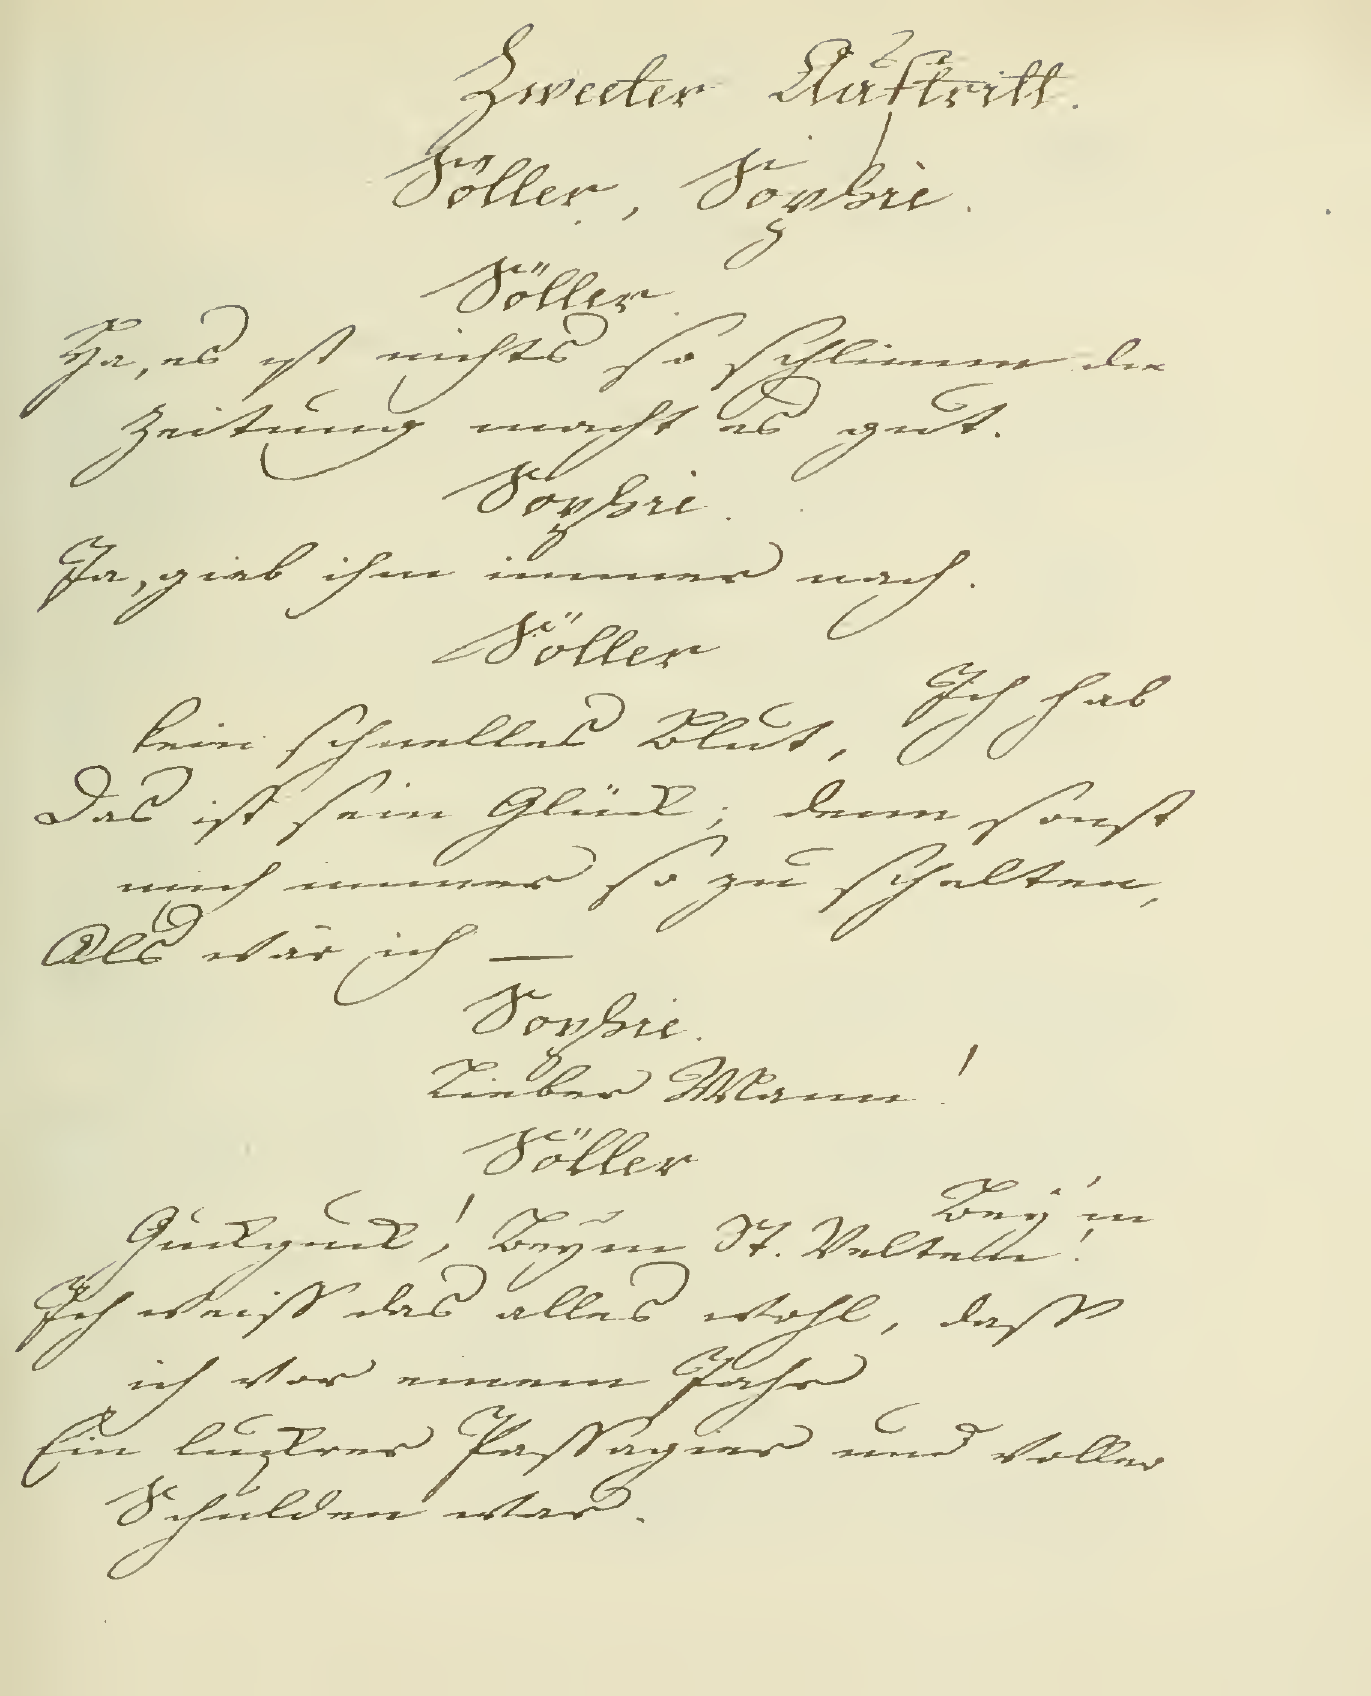 Zweeter Auftritt.
Söller, Sophie.
Söller.
Ja, es ist nichts so schlimm die
Zeitung macht es gut.
Sophie.
Ja, gieb ihm immer nach.
Söller
Ich hab
kein schnelles Blut,
Das ist sein Glück; denn sonst
mich immer so zu schelten,
Als wär ich —
Sophie.
Lieber Mann!
Söller
Bey'm
Guckguck! Beym St. Velten!
Ich weiß das alles wohl, daß
ich vor einem Jahr
Ein luckrer Passagier und voller
Schulden war.